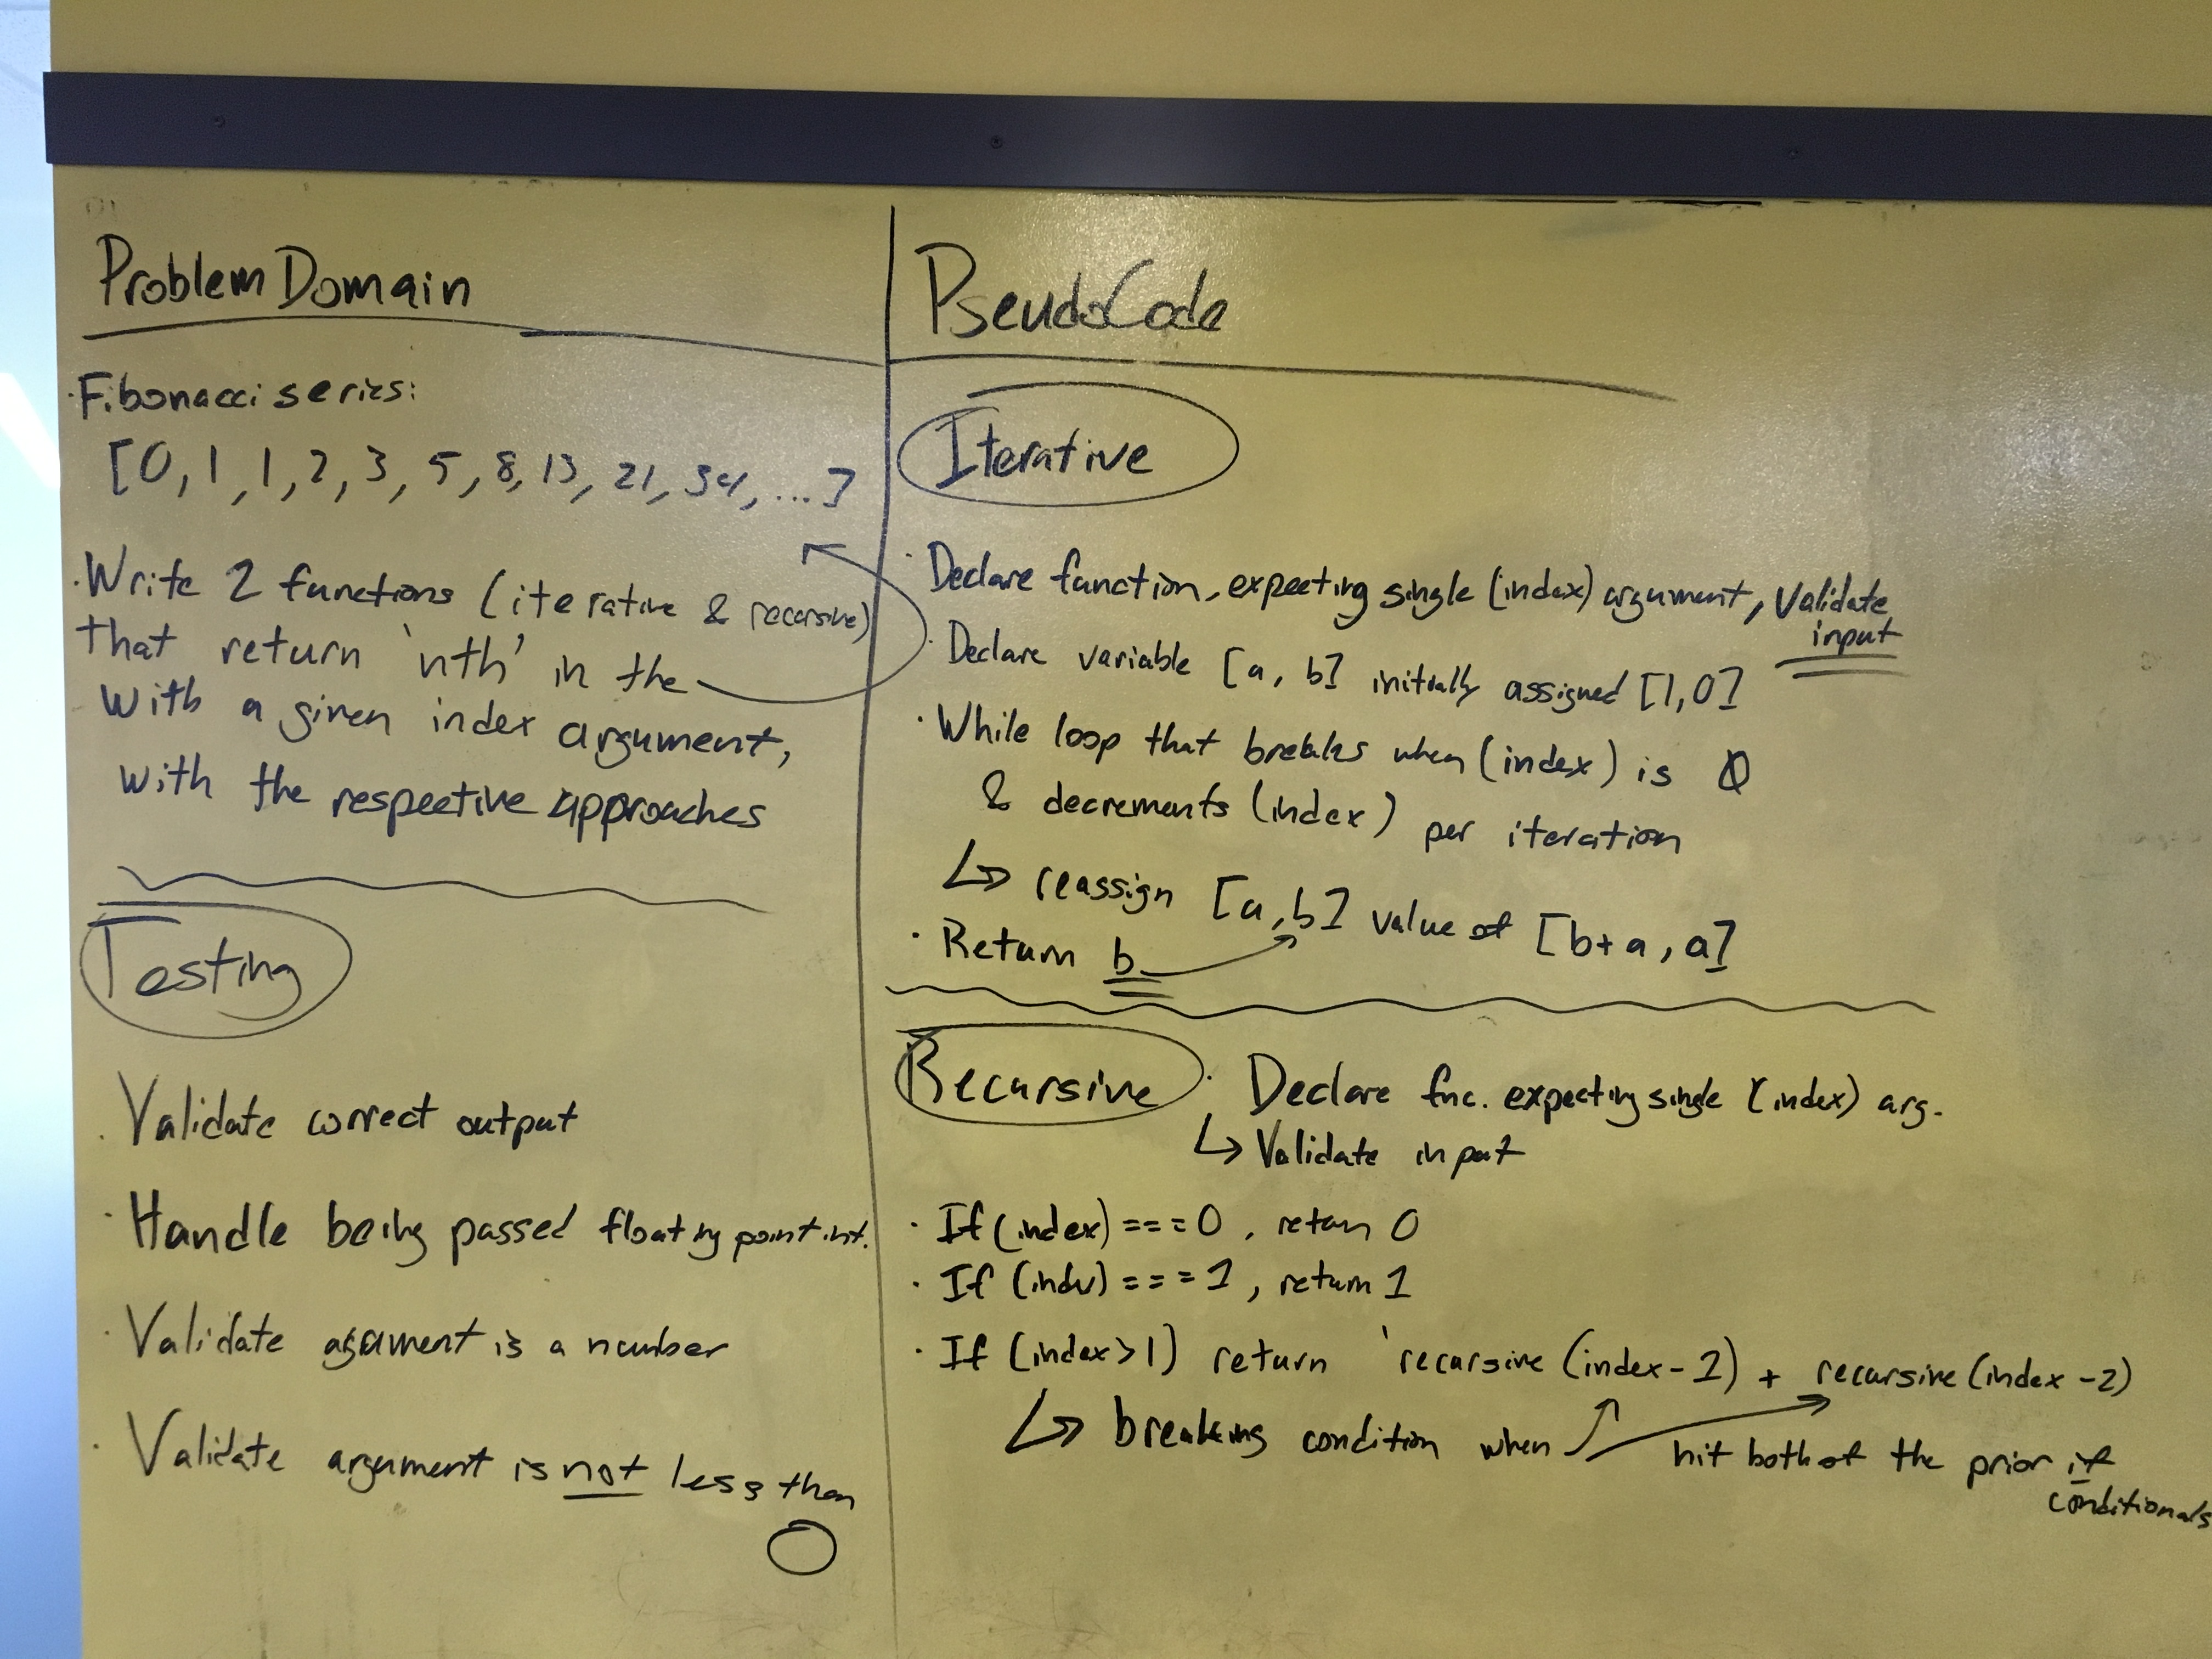 Problem Domain
· Fibonacci series:
[0, 1, 1, 2, 3, 5, 8, 13, 21, 34, ...]
· Write 2 functions (iterative & recursive)
that return 'nth' in the
with a given index argument,
with the respective approaches
Testing
· Validate correct output
· Handle being passed floating point int.
· Validate agument is a number
· Validate argument is not less than
0
PseudoCode
Iterative
· Declare function, expecting single (index) argument, Validate
input
· Declare variable [a, b] initially assigned [1,0]
· While loop that breaks when (index) is 0
& decrements (index) per iteration
↳ reassign [a,b] value of [b+a, a]
· Return b
Recursive · Declare fnc. expecting single (index) arg.
↳ Validate input
· If (index) === 0, return 0
· If (index) === 1, return 1
· If (index>1) return 'recursive (index-1) + recursive (index-2)
↳ breaking condition when hit both of the prior if
conditionals